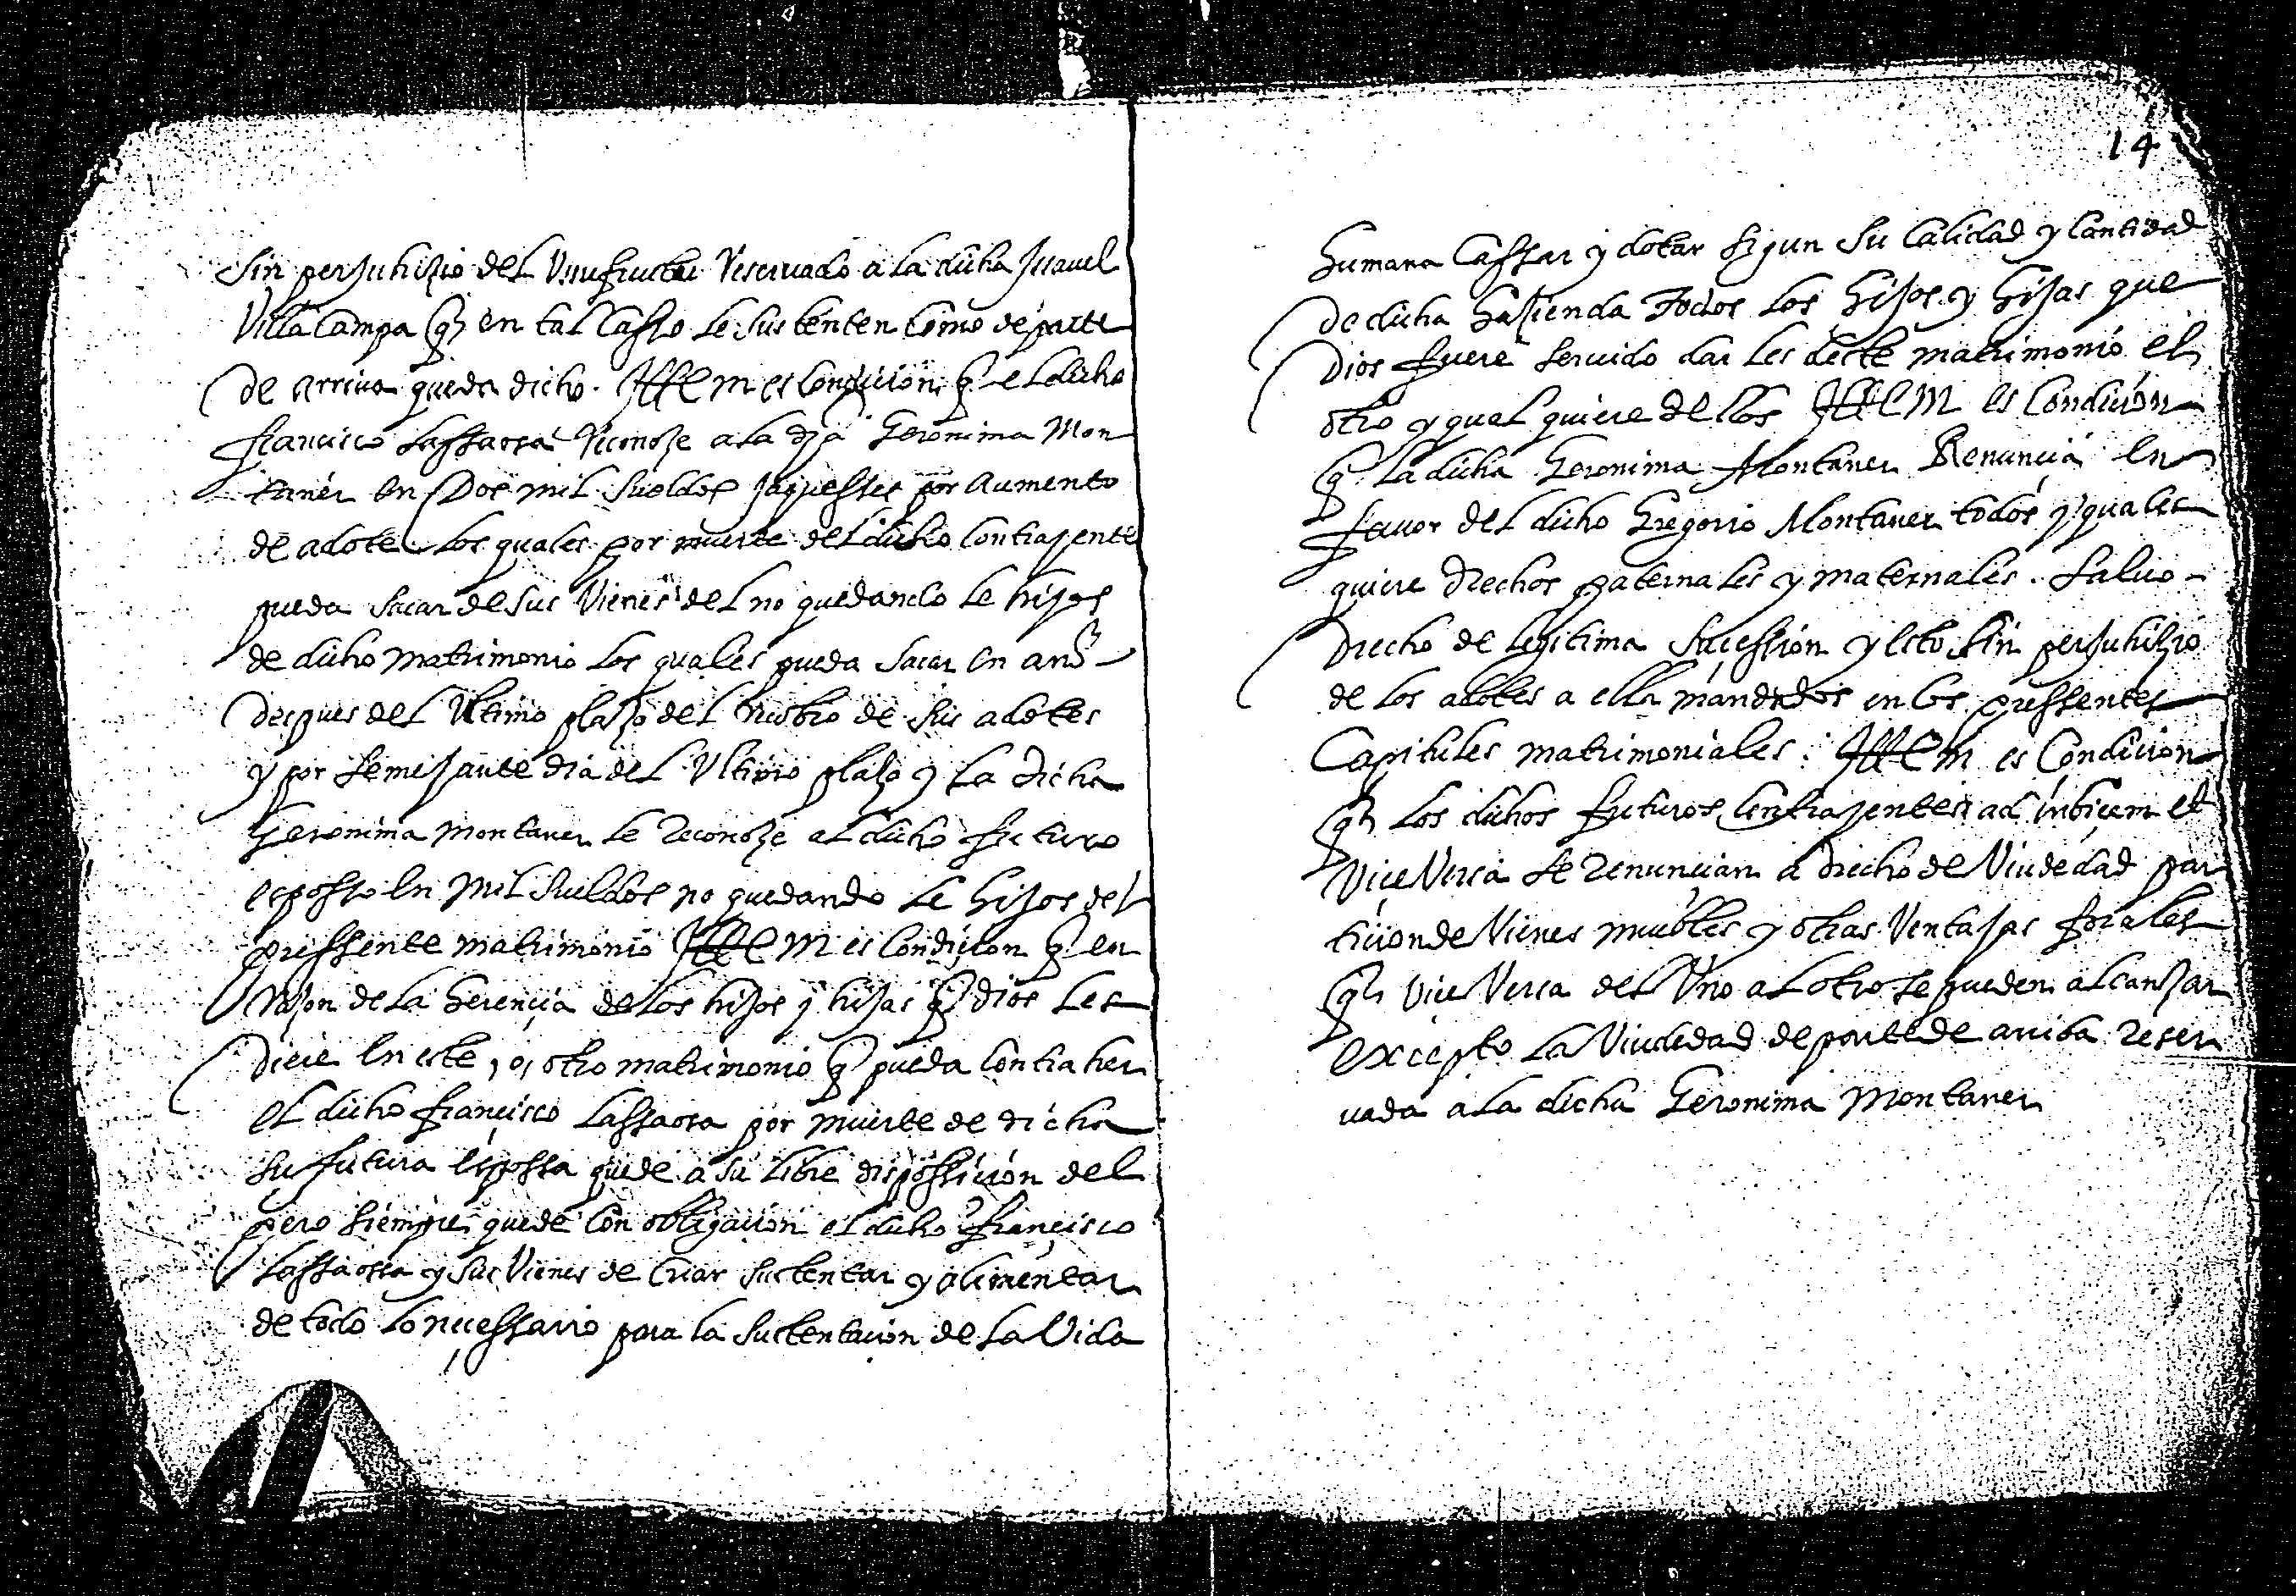 sin perjuhizio del Vsufructu reseruado a la dicha Jsauel
Villacampa q en tal casso le sustenten como de parte
de arriua queda dicho. Ittem es condicion q el dicho
francisco Lassaosa reconoze a la dha Geronima Mon
taner en Dos mil sueldos jaquesses por aumento
de adote los quales por muerte del dicho contrayente
pueda sacar de sus Vienes del no quedando le hijos
de dicho matrimonio los quales pueda sacar en
despues del Vltimo plazo del de sus adotes
y por semejante dia del Vltimo plazo y la dicha
Geronima montaner le reconoze al dicho futuro
esposso en mil sueldos no quedando le hijos del
pressente matrimonio Ittem es condicion q en
razon de la herencia de los hijos y hijas q dios les
diere en este, o, otro matrimonio q pueda contraher
el dicho francisco Lassaosa por muerte de dicha
su futura espossa quede a su libre dispossicion del
pero siempre quede con obligacion el dicho francisco
Lassaosa y sus Vienes de criar sustentar y alimentar
de todo lo necessario para la sustentacion de la Vida
14
humana cassar y dotar sigun su calidad y cantidad
de dicha hazienda todos los hijos y hijas que
Dios fuere seruido dar les deste matrimonio el
otro y qual quiere dellos Ittem es condicion
q la dicha Geronima Montaner Renuncia en
fauor del dicho Gregorio Montaner todos y quales
quiere drechos paternales y maternales. saluo
drecho de legitima sucession y esto sin perjuhizio
de los adotes a ella mandados en los pressentes
Capitules matrimoniales. Ittem es Condicion
q los dichos futuros contrayentes ad inbicem et
Vice Versa se renuncian a drecho de Viudedad par
ticion de Vienes muebles y otras Ventajas forales
q Vice Versa del Vno al otro se pueden alcanzar
excepto la Viudedad de parte de arriba reser
uada a la dicha Geronima Montaner